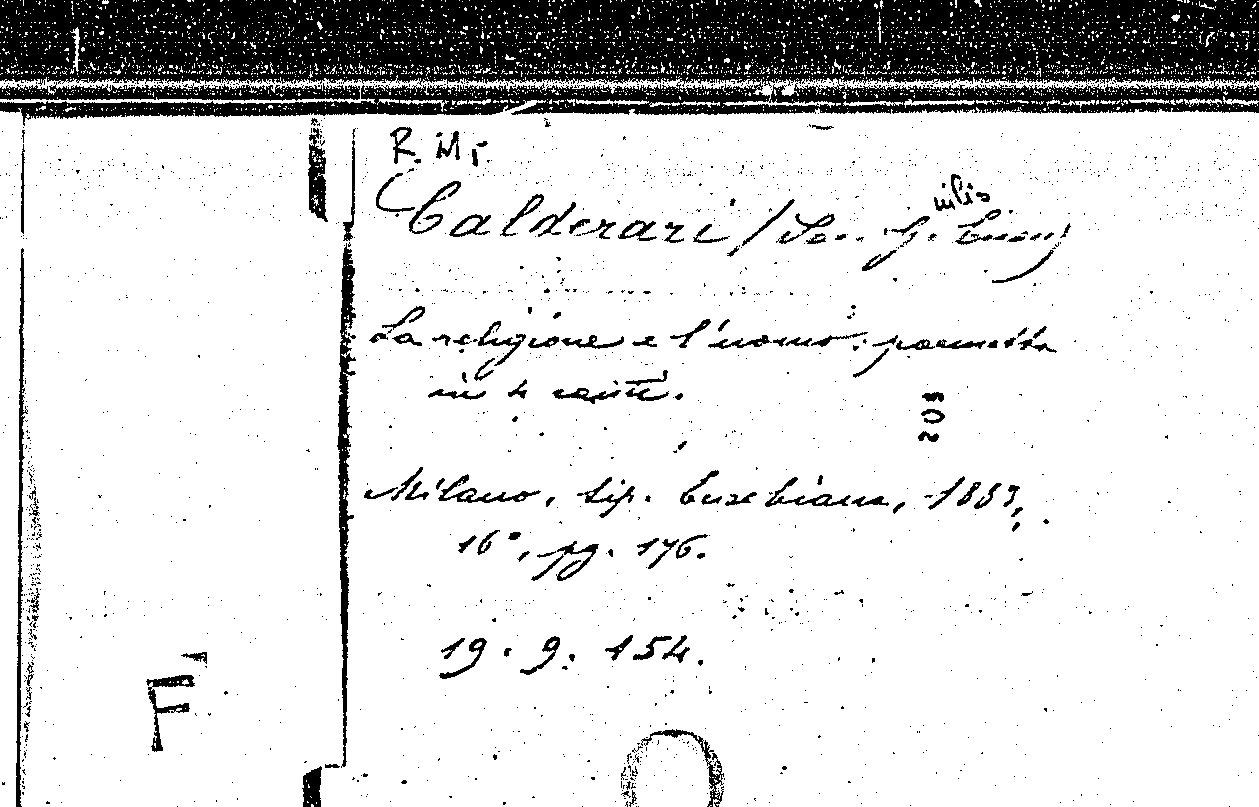 R. Mr
Calderari / G.
La religione e l'uomo: poemetto
in 4 canti.
Milano, tip. Eusebiana, 1853,
16°, pg. 176.
19. 9. 154.
F